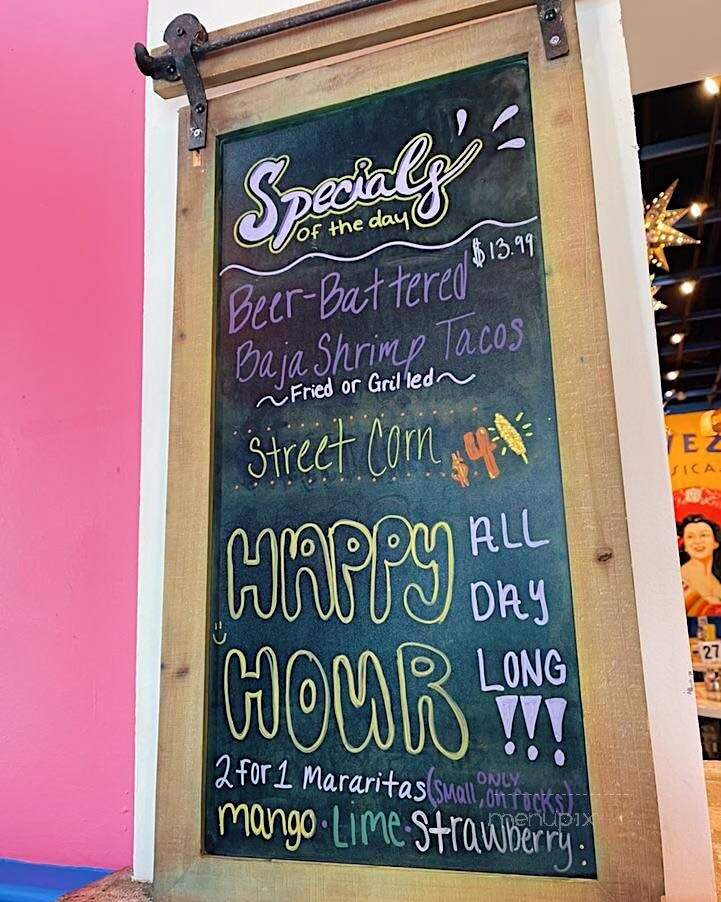 Specials
of the day
$13.99
Beer-Battered
Baja Shrimp Tacos
~Fried or Grilled~
Street Corn $4
HAPPY ALL
DAY
HOUR LONG
!!!
2 for 1 Mararitas (small, ONLY on rocks)
mango · Lime · Strawberry.
menupix
EZ
SICA
27